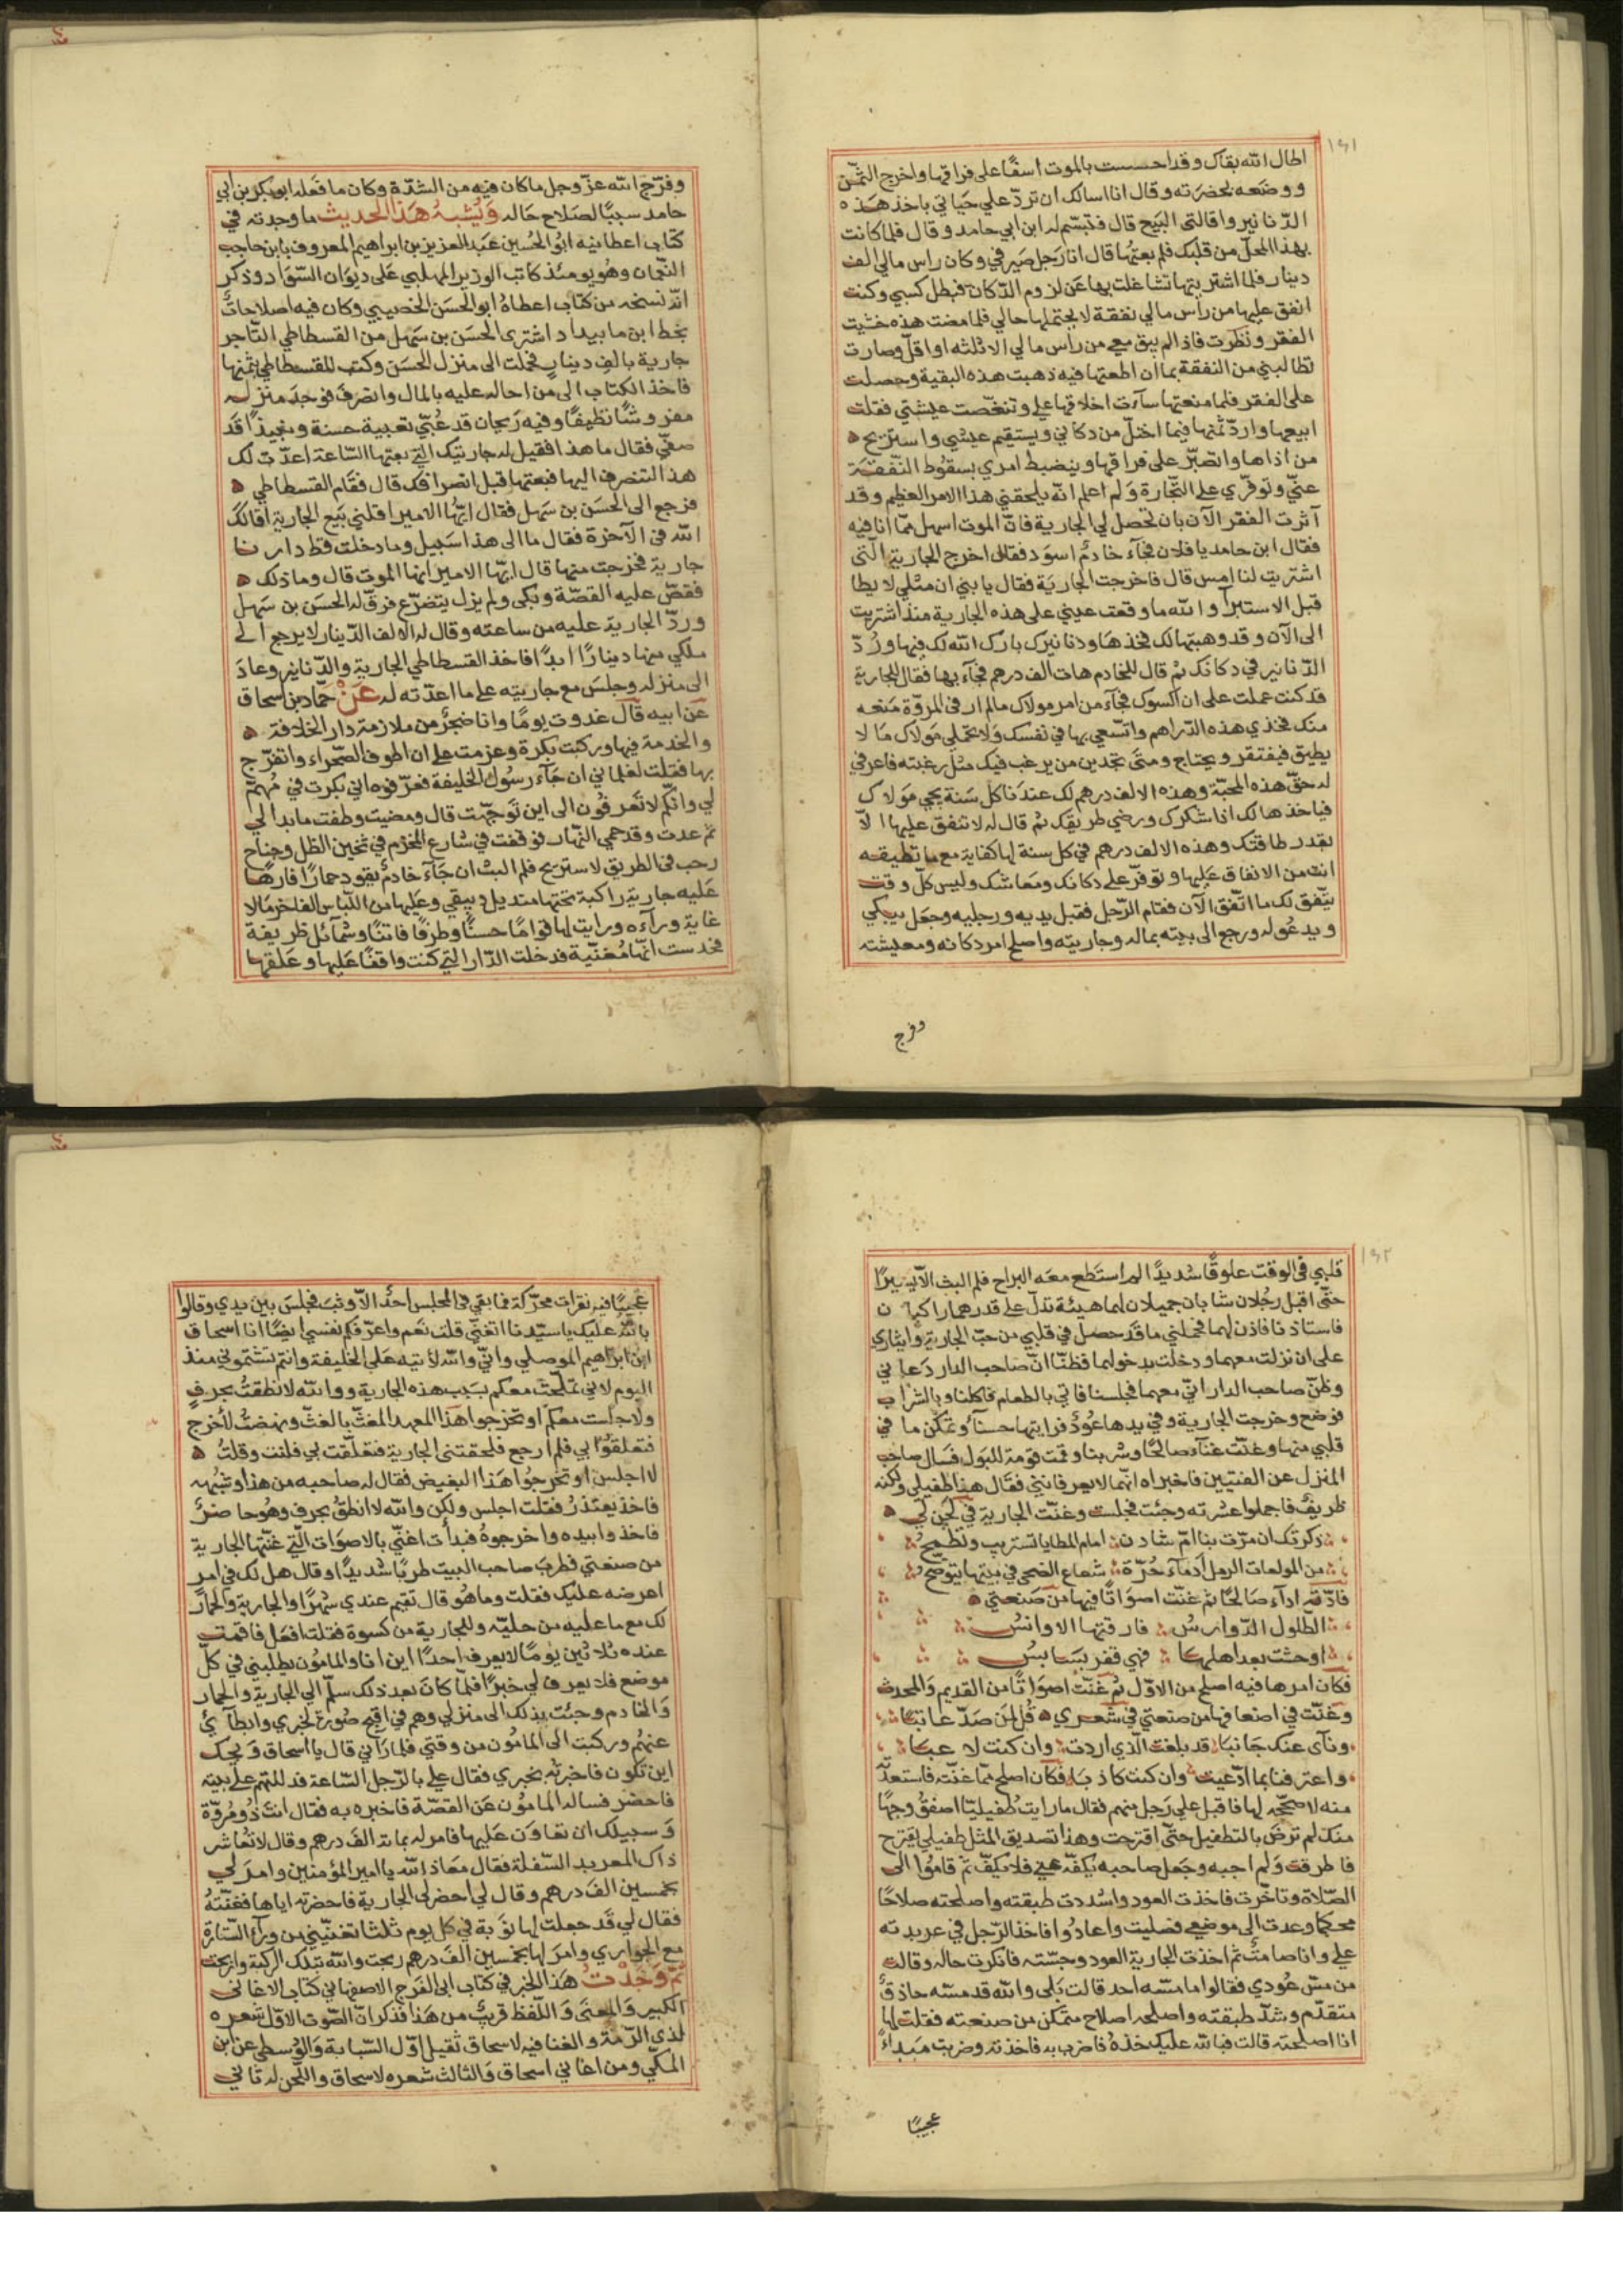 ١٤١
اطال الله بقاك وقد احسست بالموت اسفًا على فراقها واخرج الثمن
ووضعه بحضرته وقال انا اسالك ان تردّ علي حياتي باخذ هذه
الدنانير واقالتى البيع قال فتبسّم له ابن ابي حامد وقال فلما كانت
بهذا المحلّ من قلبك فلم بعتها قال انا رجل صيرفي وكان راس مالي الف
دينار فلما اشتريتها تشاغلت بها عن لزوم الدكان فبطل كسبي وكنت
انفق عليها من راس مالي نفقة لا يحتملها حالي فلما مضت هذه خشيت
الفقر ونظرت فاذا لم يبق معي من راس مالي الا ثلثه او اقلّ وصارت
تطالبني من النفقة بما ان اطعتها فيه ذهبت هذه البقية وحصلت
على الفقر فلما منعتها ساءت اخلاقها علي وتنغّصت عيشتي فقلت
ابيعها واردّ ثمنها فيما اختلّ من دكاني ويستقيم عيشي واستريح
من اذاها واتصبّر على فراقها وينضبط امري بسقوط النفقة
عنّي وتوفّري على التجارة ولم اعلم انه يلحقني هذا الامر العظيم وقد
آثرت الفقر الآن بان تحصل لي الجارية فانّ الموت اسهل ممّا انا فيه
فقال ابن حامد يا فلان فجآء خادمٌ اسود فقال اخرج الجارية التي
اشتريت لنا امس قال فاخرجت الجارية فقال يا بني ان مثلي لا يطا
قبل الاستبرآ والله ما وقعت عيني على هذه الجارية منذ اشتريت
الى الآن وقد وهبتها لك فخذها ودنانيرك بارك الله لك فيها وردّ
الدنانير في دكانك ثم قال للخادم هات الف درهم فجآء بها فقال للجارية
قد كنت عملت على ان اكسوك فجآء من امر مولاك ما لم ار في المروّة منعه
منك فخذي هذه الدراهم واتسعي بها في نفسك ولا تحمّلي مولاك ما لا
يطيق فيفتقر ويحتاج ومتى تجدين من يرغب فيك مثل رغبته فاعرفي
له حقّ هذه المحبّة وهذه الالف درهم لك عندنا كل سنة يجي مولاك
فياخذها لك اذا شكرك ورضي طريقك ثم قال له لا تنفق عليها الّا
بقدر طاقتك وهذه الالف درهم في كل سنة لها كفاية مع ما تطيقه
انت من الانفاق عليها وتوفّر على دكانك ومعاشك وليس كلّ وقت
يتّفق لك ما اتّفق الآن فقام الرّجل فقبل يديه ورجليه وجعل يبكي
ويدعو له ورجع الى بيته بماله وجاريته واصلح امر دكانه ومعيشته
وفرج
وفرّج الله عزّ وجل ما كان فيه من الشدّة وكان ما فعله ابو بكر بن ابي
حامد سببًا لصلاح حاله ويُشبهُ هَذا الحديث ما وجدته في
كتاب اعطانيه ابو الحسين عبد العزيز بن ابراهيم المعروف بابن حاجب
النعمان وهو يومئذ كاتب الوزير المهلبي على ديوان السّواد وذكر
انّه نسخه من كتاب اعطاهُ ابو الحسن الخصيبي وكان فيه اصلاحاتٌ
بخط ابن مابيداد اشترى الحسن بن سهل من القسطاطي التاجر
جارية بالف دينار فحملت الى منزل الحسن وكتب للقسطاطي بثمنها
فاخذ الكتاب الى من احاله عليه بالمال وانصرف فوجد منزله
مفروشًا نظيفًا وفيه ريحان قد عُبّي تعبية حسنة ونبيذًا قد
صفّي فقال ما هذا فقيل له جاريتك التي بعتها الساعة اعدّت لك
هذا لتنصرف اليها فبعتها قبل انصرافك قال فقام القسطاطي
فرجع الى الحسن بن سهل فقال ايّها الامير اقلني بيع الجارية اقالك
الله في الآخرة فقال ما الى هذا سبيل وما دخلت قط دارنا
جارية فخرجت منها قال ايّها الامير انها الموت قال وما ذلك
فقصّ عليه القصّة وبكى ولم يزل يتضرّع فرقّ له الحسن بن سهل
وردّ الجارية عليه من ساعته وقال له الالف الدينار لا يرجع الى
ملكي منها دينارًا ابدًا فاخذ القسطاطي الجارية والدنانير وعاد
الى منزله وجلس مع جاريته على ما اعدّته له عَنْ حمّاد بن اسحاق
عن ابيه قال غدوت يومًا وانا ضجرٌ من ملازمة دار الخلافة
والخدمة فيها وركبت بكرة وعزمت على ان اطوف الصحراء واتفرّج
بها فقلت لغلماني ان جآء رسول الخليفة فعرّفوه اني بكرت في مُهمّ
لي وانّكم لا تعرفون الى اين توجّهت قال ومضيت وطفت ما بدا لي
ثم عدت وقد حمي النّهار فوقفت في شارع المخرّم في ثخين الظل وجناح
رحب في الطريق لاستريح فلم البث ان جآء خادمٌ يقود حمارًا فارهًا
عليه جارية راكبة تحتها منديل دبيقي وعليها من اللباس الفاخر ما لا
غاية ورآءه ورايت لها قوامًا حسنًا وطرفًا فاتنًا وشمائل ظريفة
فحدست انّها مُغنّية فدخلت الدّار التي كنت واقفًا عليها وعلقها
١٤٢
قلبي في الوقت علوقًا شديدًا لم استطع معه البراح فلم البث الّا يسيرًا
حتّى اقبل رجلان شابان جميلان لهما هيئة تدلّ على قدرهما راكبان
فاستاذنا فاذن لهما فحملني ما قد حصل في قلبي من حبّ الجارية وايثاري
على ان نزلت معهما ودخلت بدخولهما فظنّا انّ صاحب الدار دعاني
وظنّ صاحب الدار انّي معهما فجلسنا فاتي بالطعام فاكلنا وبالشراب
فوضع وخرجت الجارية وفي يدها عُودٌ فرايتها حسنآ وتمكّن ما في
قلبي منها وغنّت غنآء صالحًا وشربنا وقمت قومة للبول فسال صاحب
المنزل عن الفتيين فاخبراه انّهما لا يعرفانني فقال هذا طفيلي ولكنه
ظريفٌ فاجملوا عشرته وجئت فجلست وغنّت الجارية في لحن لي
ذكرتك ان مرّت بنا امّ شادن امام المطايا تستريب وتطمح
من المولعات الرمل ادمآء حُرّة شعاع الضحى في بيتها يتوضّح
فادّته ادآء صالحًا ثم غنّت اصواتًا فيها من صنعتي
الطلول الدّوارسُ فارقتها الاوانسُ
اوحشت بعد اهلها فهي قفر بسابسُ
فكان امرها فيه اصلح من الاوّل ثم غنّت اصواتًا من القديم والمحدث
وغنّت في اضعافها من صنعتي في شعري قُل لمن صَدّ عاتبًا
ونآى عنك جانبا قد بلغت الّذي اردت وان كنت لاعبًا
واعترفنا بما ادّعيت وان كنت كاذبًا فكان اصلح ممّا غنّته فاستعدتُّ
منه لاصحّحه لها فاقبل علي رجل منهم فقال ما رايت طُفيليّا اصفق وجهًا
منك لم ترضَ بالتطفيل حتّى اقترحت وهذا تصديق المثل طفيلي يقترح
فاطرقت ولم اجبه وجعل صاحبه يكفّه عني فلا يكفّ ثم قاموا الى
الصّلاة وتاخّرت فاخذت العود واشددت طبقته واصلحته صلاحًا
محكمًا وعدت الى موضعي فصليت وعادوا فاخذ الرّجل في عربدته
علي وانا صامتٌ ثم اخذت الجارية العود وجسّته فانكرت حاله وقالت
من مسّ عُودي فقالوا ما مسّه احد قالت بلى والله قد مسّه حاذقٌ
متقدّم وشدّ طبقته واصلحه اصلاح متمكّن من صنعته فقلت لها
انا اصلحته قالت فبالله عليك خذهُ فاضرب به فاخذته وضربت مبداءً
عجيبًا
عجيبًا فيه نقرات محرّكة فما بقي في المجلس احدٌ الّا وثب فجلس بين يدي وقالوا
بالله عليك يا سيّدنا اتغنّي قلت نعم واعرّفكم نفسي ايضًا انا اسحاق
ابن ابراهيم الموصلي وانّي والله لأتيه على الخليفة وانتم تشتموني منذ
اليوم لاني تملّحت معكم بسبب هذه الجارية ووالله لا نطقتُ بحرفٍ
ولا جلست معكم او تخرجوا هذا المعربد المغثّ بالغثّ ونهضتُ لأخرج
فتعلقوا بي فلم ارجع فلحقتني الجارية فتعلّقت بي فلنت وقلتُ
لا اجلس او تخرجُوا هذا البغيض فقال له صاحبه من هذا وشبهه
فاخذ يعتذرُ فقلت اجلس ولكن والله لا انطقُ بحرف وهُو حاضرٌ
فاخذوا بيده واخرجوهُ فبدأت اغنّي بالاصوات الّتي غنّتها الجارية
من صنعتي فطرب صاحب البيت طربًا شديدًا وقال هل لك في امرٍ
اعرضه عليك فقلت وما هُو قال تقيم عندي شهرًا والجارية والحمار
لك مع ما عليه من حليّه وللجارية من كسوة فقلت افعل فاقمت
عنده ثلاثين يومًا لا يعرف احدًا اين انا والمامُون يطلبني في كلّ
موضع فلا يعرف لي خبرًا فلمّا كان بعد ذلك سلّم الي الجارية والحمار
والخادم وجئت بذلك الى منزلي وهم في اقبح صُورة لخبري وابطآئي
عنهُم وركبت الى المامُون من وقتي فلما رآني قال يا اسحاق ويحك
اين تكون فاخبرته بخبري فقال علي بالرّجل السّاعة فدللتهم على بيته
فاحضر فساله المامُون عن القصّة فاخبره به فقال انتَ ذُو مُروّة
وسبيلك ان تعاون عليها فامر له بماية الف درهم وقال لا تُعاشر
ذاك المعربد السّفلة فقال معاذ الله يا امير المؤمنين وامر لي
بخمسين الف درهم وقال لي احضر لي الجارية فاحضرته اياها فغنّتهُ
فقال لي قد جعلت لها نوبة في كل يوم ثلثا تغنّيني من ورآء السّتارة
مع الجواري وامر لها بخمسين الف درهم ربحت والله بتلك الركبة واربحت
ثمّ وَجَدْتُ هذا الخبر في كتاب ابى الفرج الاصبهاني كتاب الاغاني
الكبير والمعنى واللّفظ قريبٌ من هذا فذكر انّ الصّوت الاوّل شعره
لذي الرّمة والغنا فيه لاسحاق ثقيل اوّل السّبابة والوُسطى عن ابن
المكّي ومن اغاني اسحاق والثالث شعره لاسحاق واللّحن له ثاني